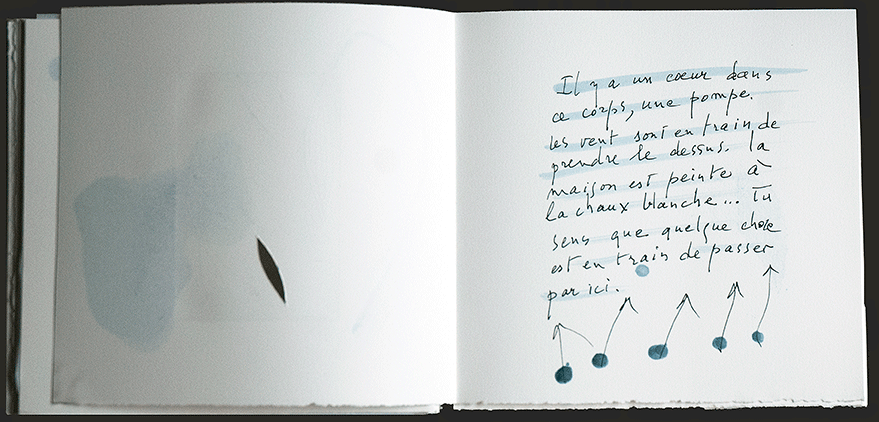 Il y a un cœur dans
ce corps, une pompe.
les vent sont en train de
prendre le dessus. la
maison est peinte à
la chaux blanche... Tu
sens que quelque chose
est en train de passer
par ici.